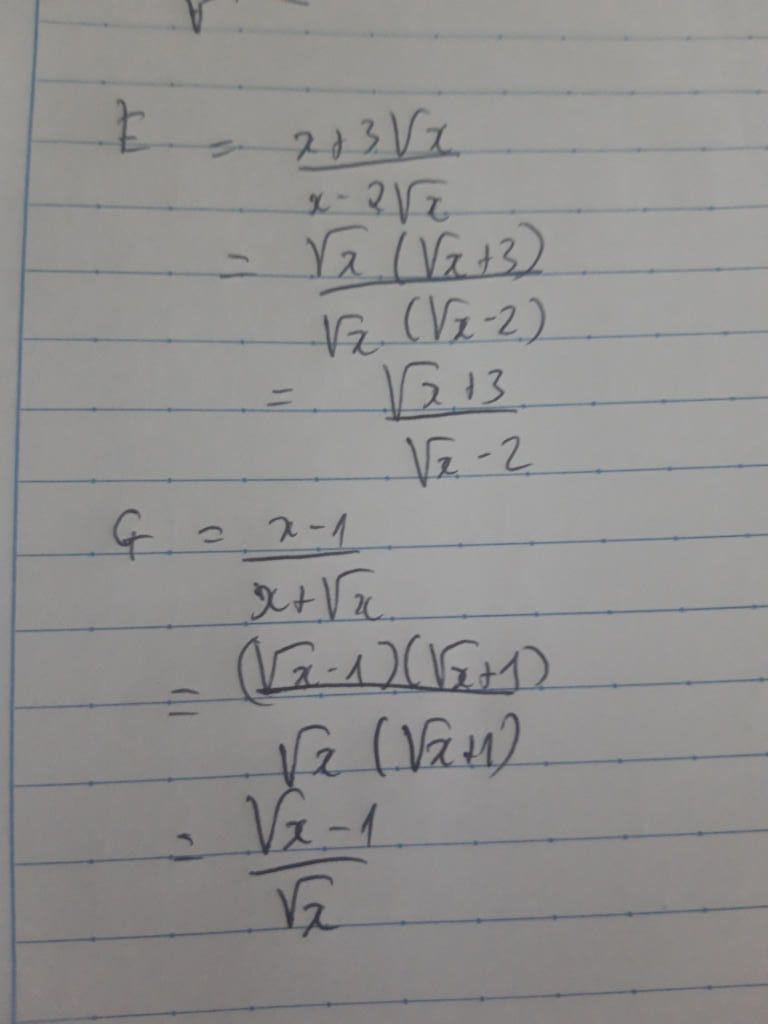 E = \frac{x+3\sqrt{x}}{x-2\sqrt{x}}
= \frac{\sqrt{x}(\sqrt{x}+3)}{\sqrt{x}(\sqrt{x}-2)}
= \frac{\sqrt{x}+3}{\sqrt{x}-2}
G = \frac{x-1}{x+\sqrt{x}}
= \frac{(\sqrt{x}-1)(\sqrt{x}+1)}{\sqrt{x}(\sqrt{x}+1)}
= \frac{\sqrt{x}-1}{\sqrt{x}}